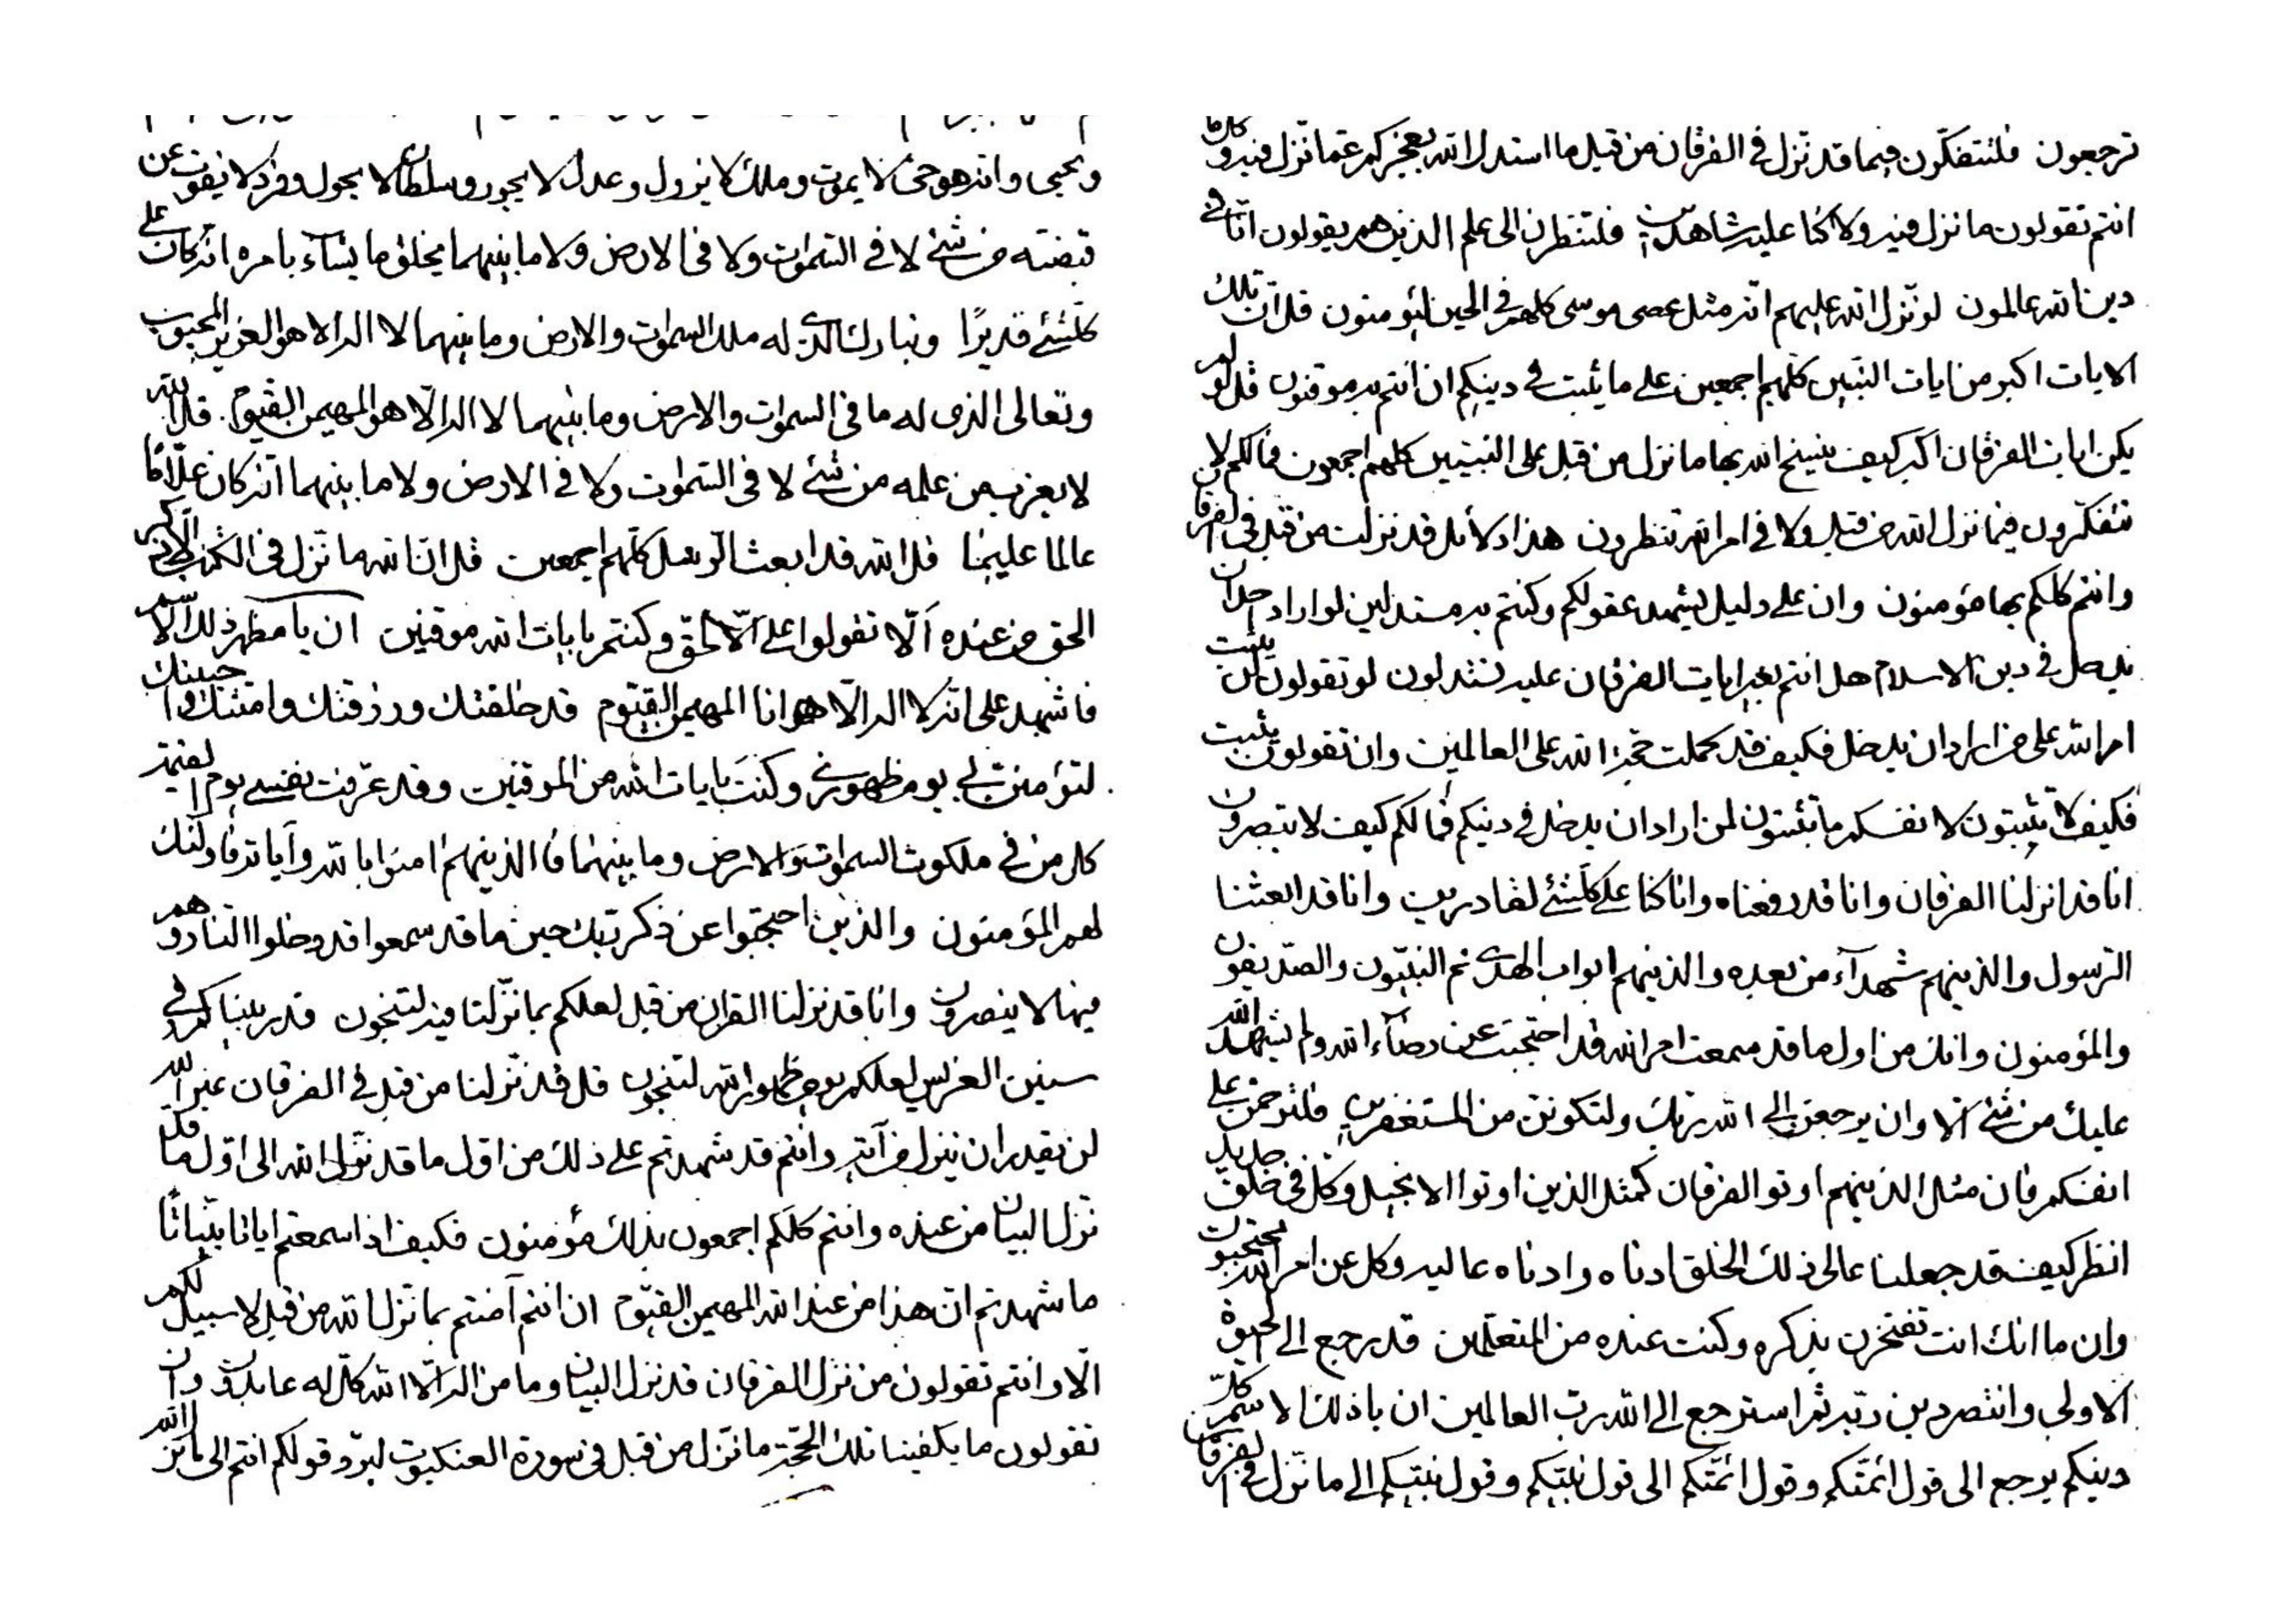 ترجعون فلتتفكّرون فيما قد نزل في الفرقان من قبل ما استدل الله بعجز كم عمّا نزل فيه وكل ما
انتم تقولون ما نزل فيه ولا كنا عليه شاهدين فلتنظرن الى علم الذين هم يقولون انا في
دين الله عالمون لو نزل الله عليهم انه مثل عصى موسى كلهم في الحين ليؤمنون قل ان تلك
الايات اكبر من ايات النبيين كلهم اجمعين على ما يثبت في دينكم ان انتم به موقنون قل لو لم
يكن ايات الفرقان اكبر كيف ينسخ الله بها ما نزل من قبل على النبيين كلهم اجمعون فما لكم لا
تتفكّرون فيما نزل الله من قبل ولا في امر الله تنظرون هذا دلائل قد نزلت من قبل في الفرقان
وانتم كلكم بها مؤمنون وان على دليل ليشهد عقولكم وكنتم به مستدلين لو اراد احد ان
يدخل في دين الاسلام هل انتم بغير ايات الفرقان عليه تستدلون لو تقولون لن يثبت
امر الله على من اراد ان يدخل فكيف قد كملت حجة الله على العالمين وان تقولون يثبت
فكيف لا تثبتون لانفسكم ما تثبتون لمن اراد ان يدخل في دينكم فما لكم كيف لا تبصرون
انا قد انزلنا الفرقان وانا قد رفعناه وانا كنا على كلشئ لقادرين وانا قد ابعثنا
الرسول والذينهم شهدآء من بعده والذينهم ابواب الهدى ثم النبيّون والصدّيقون
والمؤمنون وانك من اول ما قد سمعت امر الله قد احتجبت عن رضآء الله ولم يشهد الله
عليك من شئ الا وان يرجعن الى الله ربك ولتكونن من المستغفرين فلترحمن على
انفسكم فان مثل الذينهم اوتوا الفرقان كمثل الذين اوتوا الانجيل وكل في خلق جديد
انظر كيف قد جعلنا عالى ذلك الخلق ادناه وادناه عاليه وكل عن امر الله محتجبون
وان ما انك انت تفتخرن بذكره وكنت عنده من المتعلمين قد رجع الى الحيوة
الاولى وانتصر دين ربه ثم استرجع الى الله رب العالمين ان يا ذلك الاسم كل
دينكم يرجع الى قول ائمّتكم وقول ائمّتكم الى قول نبيّكم وقول نبيّكم الى ما نزل في الفرقان
ويحيى وانه هو حى لا يموت وملك لا يزول وعدل لا يجور وسلطان لا يحول وفرد لا يفوت عن
قبضته من شئ لا في السموات ولا في الارض ولا ما بينهما يخلق ما يشآء بامره انه كان على
كلشئ قديرًا وتبارك الذى له ملك السموات والارض وما بينهما لا اله الا هو العزيز المحبوب
وتعالى الذى له ما في السموات والارض وما بينهما لا اله الّا هو المهيمن القيوم قل الله
لا يعزب من علمه من شئ لا في السموات ولا في الارض ولا ما بينهما انه كان علّامًا
عالما عليما قل الله قد ابعث الرسل كلهم اجمعين قل ان الله ما نزل في الكتب
الحق من عنده الّا تقولوا على الله الّا الحق وكنتم بايات الله موقنين ان يا مظهر ذلك الاسم
فاشهد على انه لا اله الّا هو انا المهيمن القيّوم قد خلقتك ورزقتك وامتّك واحييتك
لتؤمنن بى يوم ظهورى وكنت بايات الله من الموقنين وقد عرّفت نفسى يوم القيمة
كل من في ملكوت السموات والارض وما بينهما فالذينهم امنوا بالله وآياته فاولئك
لهم المؤمنون والذين احتجبوا عن ذكر ربك حين ما قد سمعوا قد دخلوا النار وهم
فيها لا ينصرون وانا قد نزلنا القران من قبل لعلكم بما نزّلنا فيه لتنجون قد ربيناكم في
سنين الغرس لعلكم يوم ظهور الله لتنجون قل قد نزلنا من قبل في الفرقان غير الله
لن يقدر ان ينزل من آية وانتم قد شهدتم على ذلك من اول ما قد نزّل الله الى اول ما قد
نزل البيان من عنده وانتم كلكم اجمعون بذلك مؤمنون فكيف اذا سمعتم اياتا بيّناتًا
ما شهدتم ان هذا من عند الله المهيمن القيّوم ان انتم آمنتم بما نزل الله من قبل لا سبيل لكم
الّا وانتم تقولون من نزل الفرقان قد نزل البيان وما من اله الّا الله كل له عابدون وان
تقولون ما يكفينا تلك الحجّة ما نزل من قبل في سورة العنكبوت ليردّ قولكم انتم الى ما نزّل الله